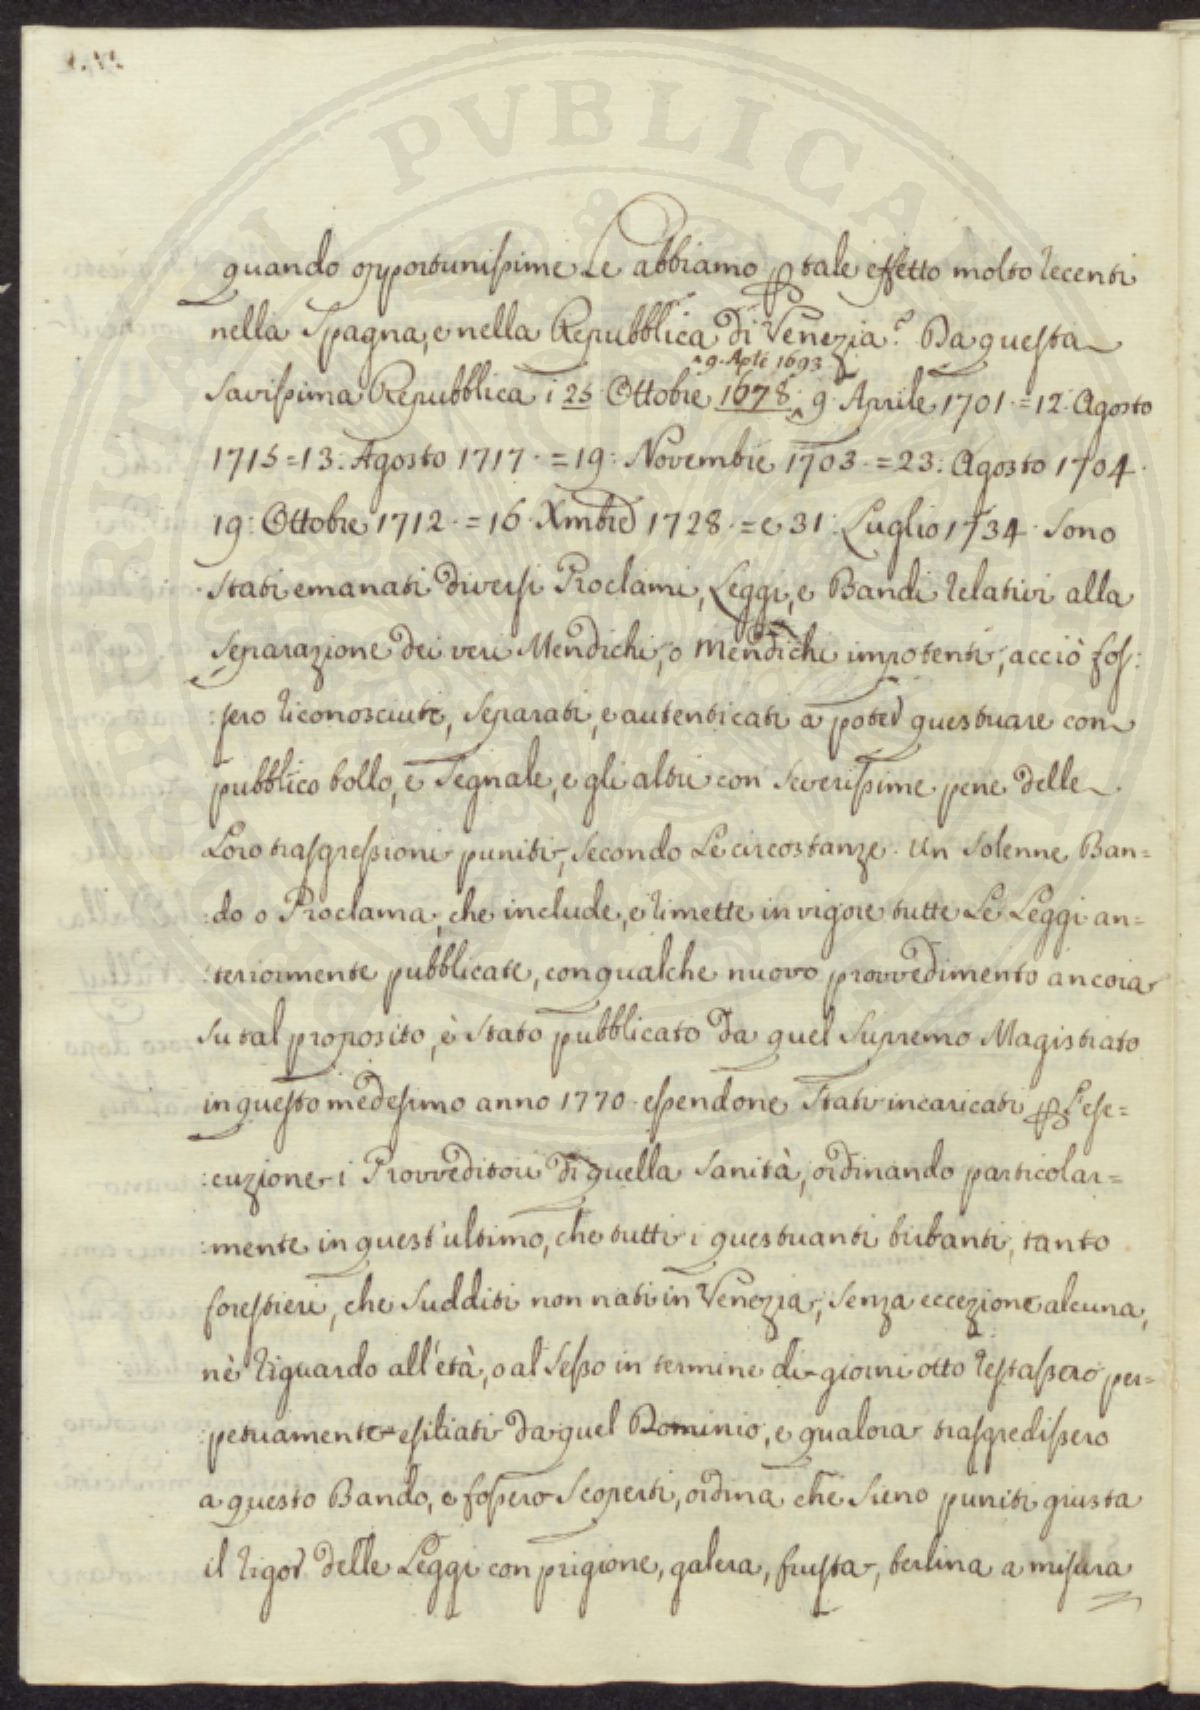 PVBLICA
quando opportunissime Le abbiamo ꝑ tale effetto molto recenti
nella Spagna, e nella Repubblica di Venezia? Da questa
^ 9. Aple 1693
Savissima Repubblica i 25 Ottobre 1678. ^ 9. Aprile 1701. = 12. Agosto
1715 = 13. Agosto 1717. = 19: Novembre 1703. = 23: Agosto 1704.
19: Ottobre 1712. = 16. Xmbre 1728. = e 31: Luglio 1734. Sono
Stati emanati diversi Proclami, Leggi, e Bandi relativi alla
Separazione dei veri Mendichi, o Mendichi impotenti, acciò fos:
:sero riconosciuti, Separati, e autenticati a poter questuare con
pubblico bollo, e Segnale, e gli altri con Severissime pene delle
Loro trasgressioni puniti, Secondo Le circostanze. Un Solenne Ban=
:do o Proclama, che include, e rimette in vigore tutte Le Leggi an=
:teriormente pubblicate, con qualche nuovo provvedimento ancora
Su tal proposito, è Stato pubblicato da quel Supremo Magistrato
in questo medesimo anno 1770. essendone Stati incaricati ꝑ l'ese=
:cuzione i Provveditori di quella Sanità, ordinando particolar=
:mente in quest'ultimo, che tutti i questuanti birbanti, tanto
forestieri, che Sudditi non nati in Venezia, Senza eccezione alcuna,
nè riguardo all'età, o al Sesso in termine di giorni otto restassero per=
:petuamente esiliati da quel Dominio, e qualora trasgredissero
a questo Bando, e fossero Scoperti, ordina che Sieno puniti giusta
il rigor delle Leggi con prigione, galera, frusta, berlina a misura